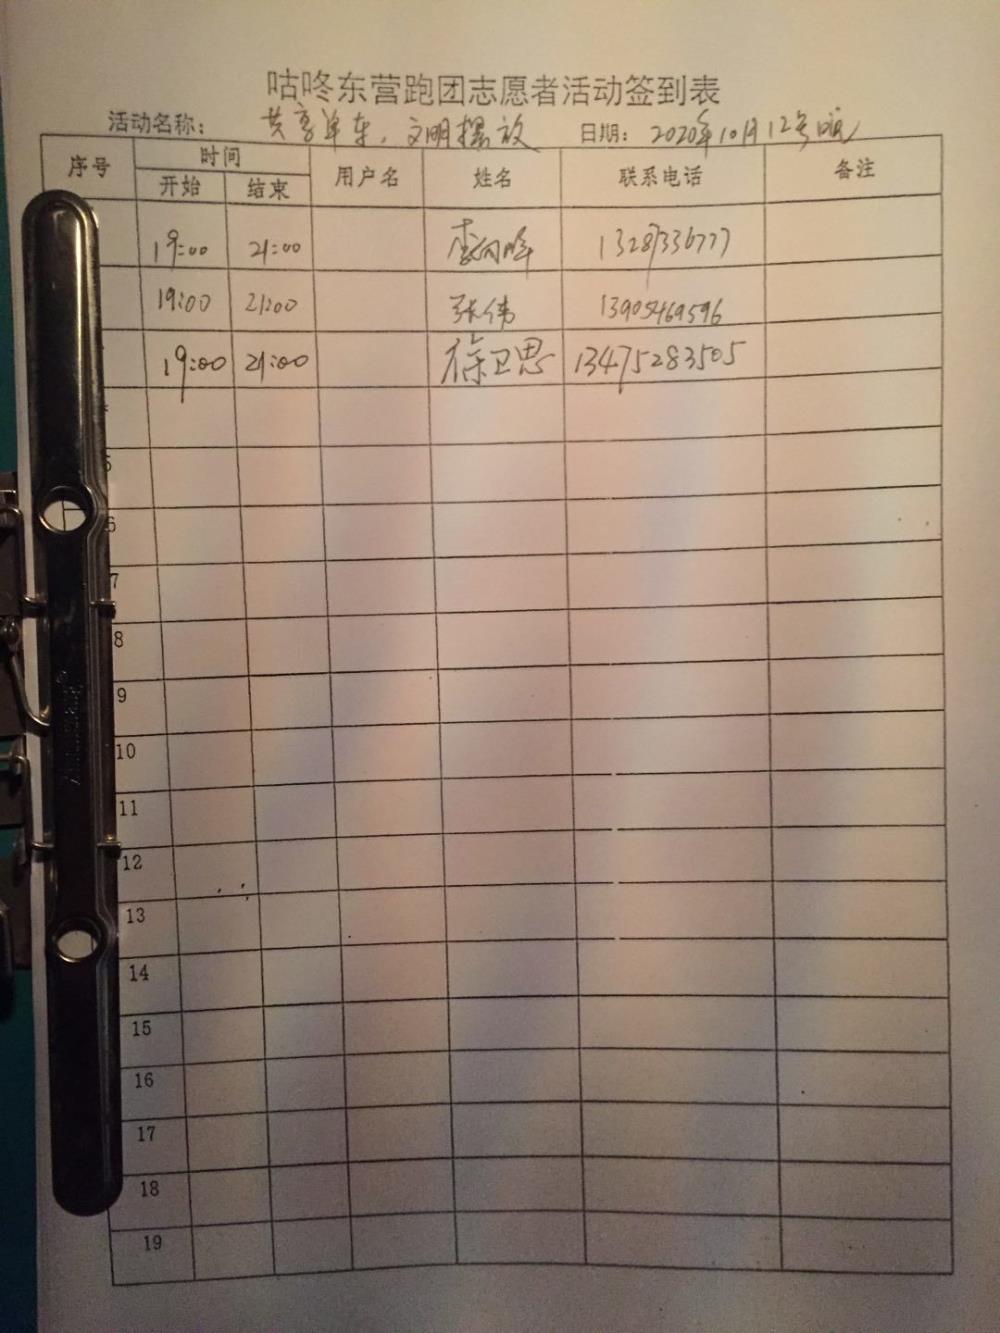 咕咚东营跑团志愿者活动签到表
活动名称： 共享单车，文明摆放 日期： 2020年10月12号晚
序号 时间 用户名 姓名 联系电话 备注
开始 结束
19:00 21:00 李向晖 13287336777
19:00 21:00 张伟 13905469596
19:00 21:00 徐卫思 13475283505
5
6
7
8
9
10
11
12
13
14
15
16
17
18
19